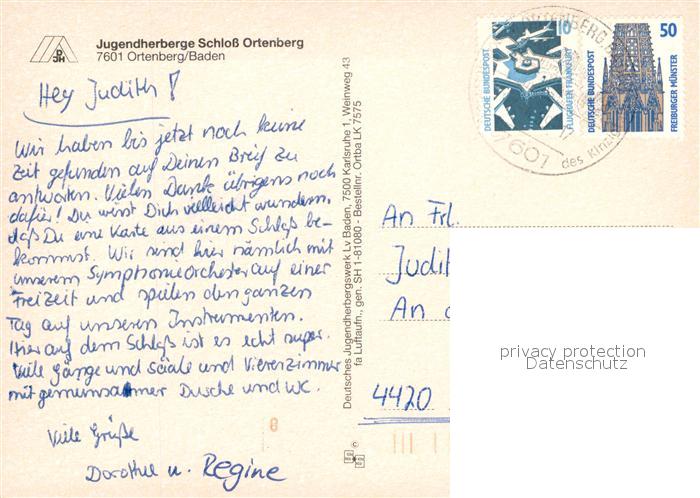 DJH
Jugendherberge Schloß Ortenberg
7601 Ortenberg/Baden
Hey Judith!
Wir haben bis jetzt noch keine
Zeit gefunden auf Deinen Brief zu
antworten. Vielen Dank übrigens noch
dafür! Du wirst Dich vielleicht wundern,
daß Du eine Karte aus einem Schloß be-
kommst. Wir sind hier nämlich mit
unserem Symphonieorchester auf einer
Freizeit und spielen den ganzen
Tag auf unseren Instrumenten.
Hier auf dem Schloß ist es echt super.
Viele Gänge und Säale und Viererzimmer
mit gemeinsamer Dusche und WC.
Viele Grüße
Dorothee u. Regine
Deutsches Jugendherbergswerk Lv Baden, 7500 Karlsruhe 1, Weinweg 43
fa Luftaufn., gen. SH 1-81080 - Bestellnr. Ortba LK 7575
10
DEUTSCHE BUNDESPOST
FLUGHAFEN FRANKFURT
50
DEUTSCHE BUNDESPOST
FREIBURGER MÜNSTER
7601
des Kinzig
An Frl.
Judit
An
4420
privacy protection
Datenschutz
8
©